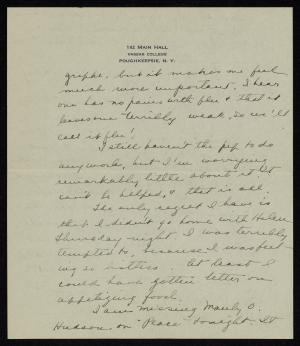 142 MAIN HALL
VASSAR COLLEGE
POUGHKEEPSIE, N. Y.
graphs, but it makes me feel
much more important. I hear
one has no pains with flu & that it
leaves one terribly weak, so we'll
call it flu!
I still haven't the pep to do
any work, but I'm worrying
remarkably little about it. It
can't be helped, & that is all.
The only regret I have is
that I didn't go home with Helen
Thursday night. I was terribly
tempted to, because I was feel
ing so listless. At least I
could have gotten better on
appetizing food.
I am missing Manly O.
Hudson on "Peace" tonight. It